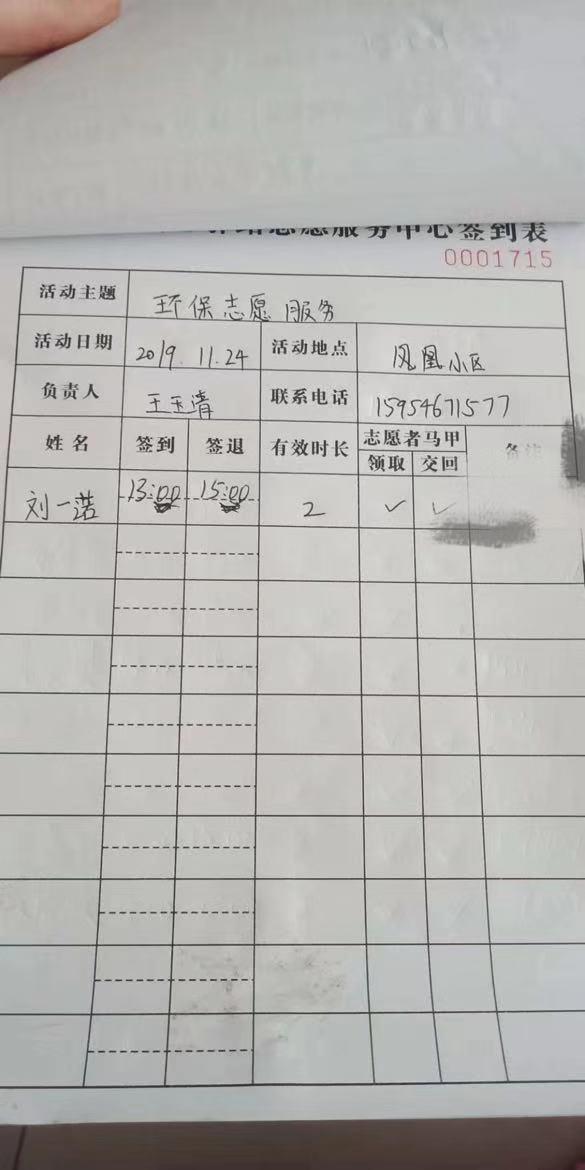 志愿服务中心签到表
0001715
活动主题 环保志愿服务
活动日期 2019.11.24 活动地点 凤凰小区
负责人 王玉清 联系电话 15954671577
姓名 签到 签退 有效时长 志愿者马甲 备注
领取 交回
刘一诺 13:00 15:00 2 ✓ ✓